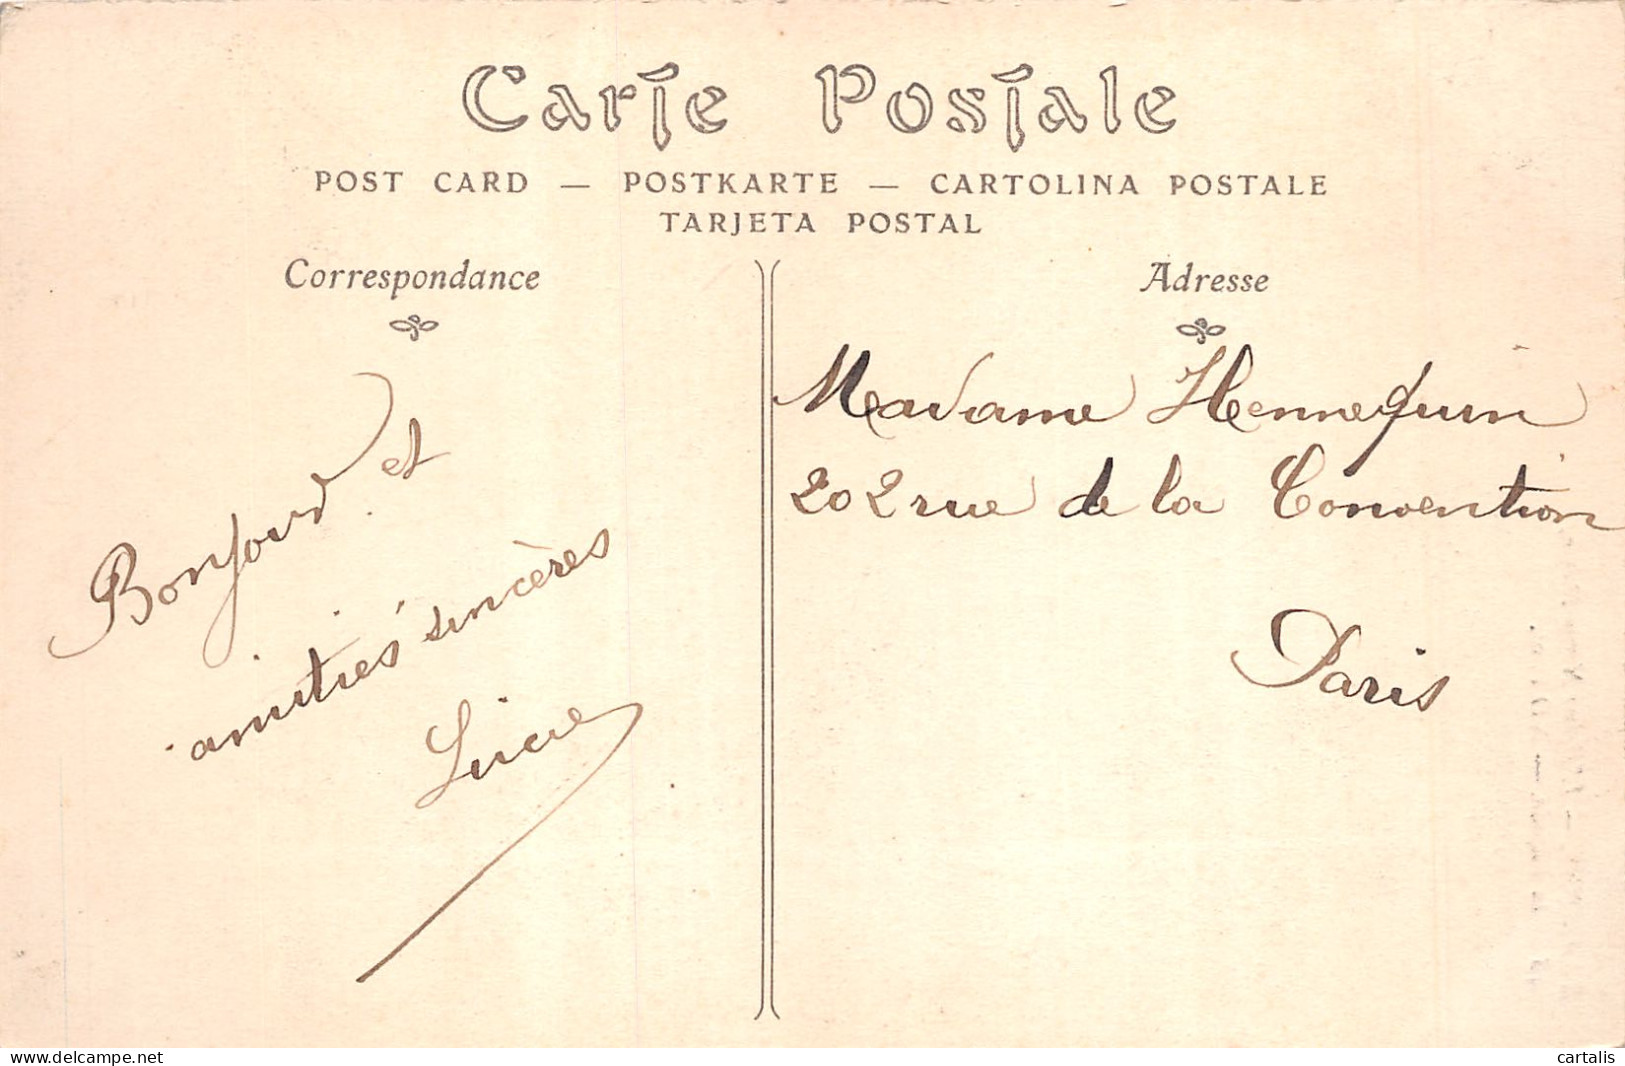 Carte Postale
POST CARD — POSTKARTE — CARTOLINA POSTALE
TARJETA POSTAL
Correspondance
Bonjour et
amitiés sincères
Lucie
Adresse
Madame Hennequin
202 rue de la Convention
Paris
www.delcampe.net
cartalis